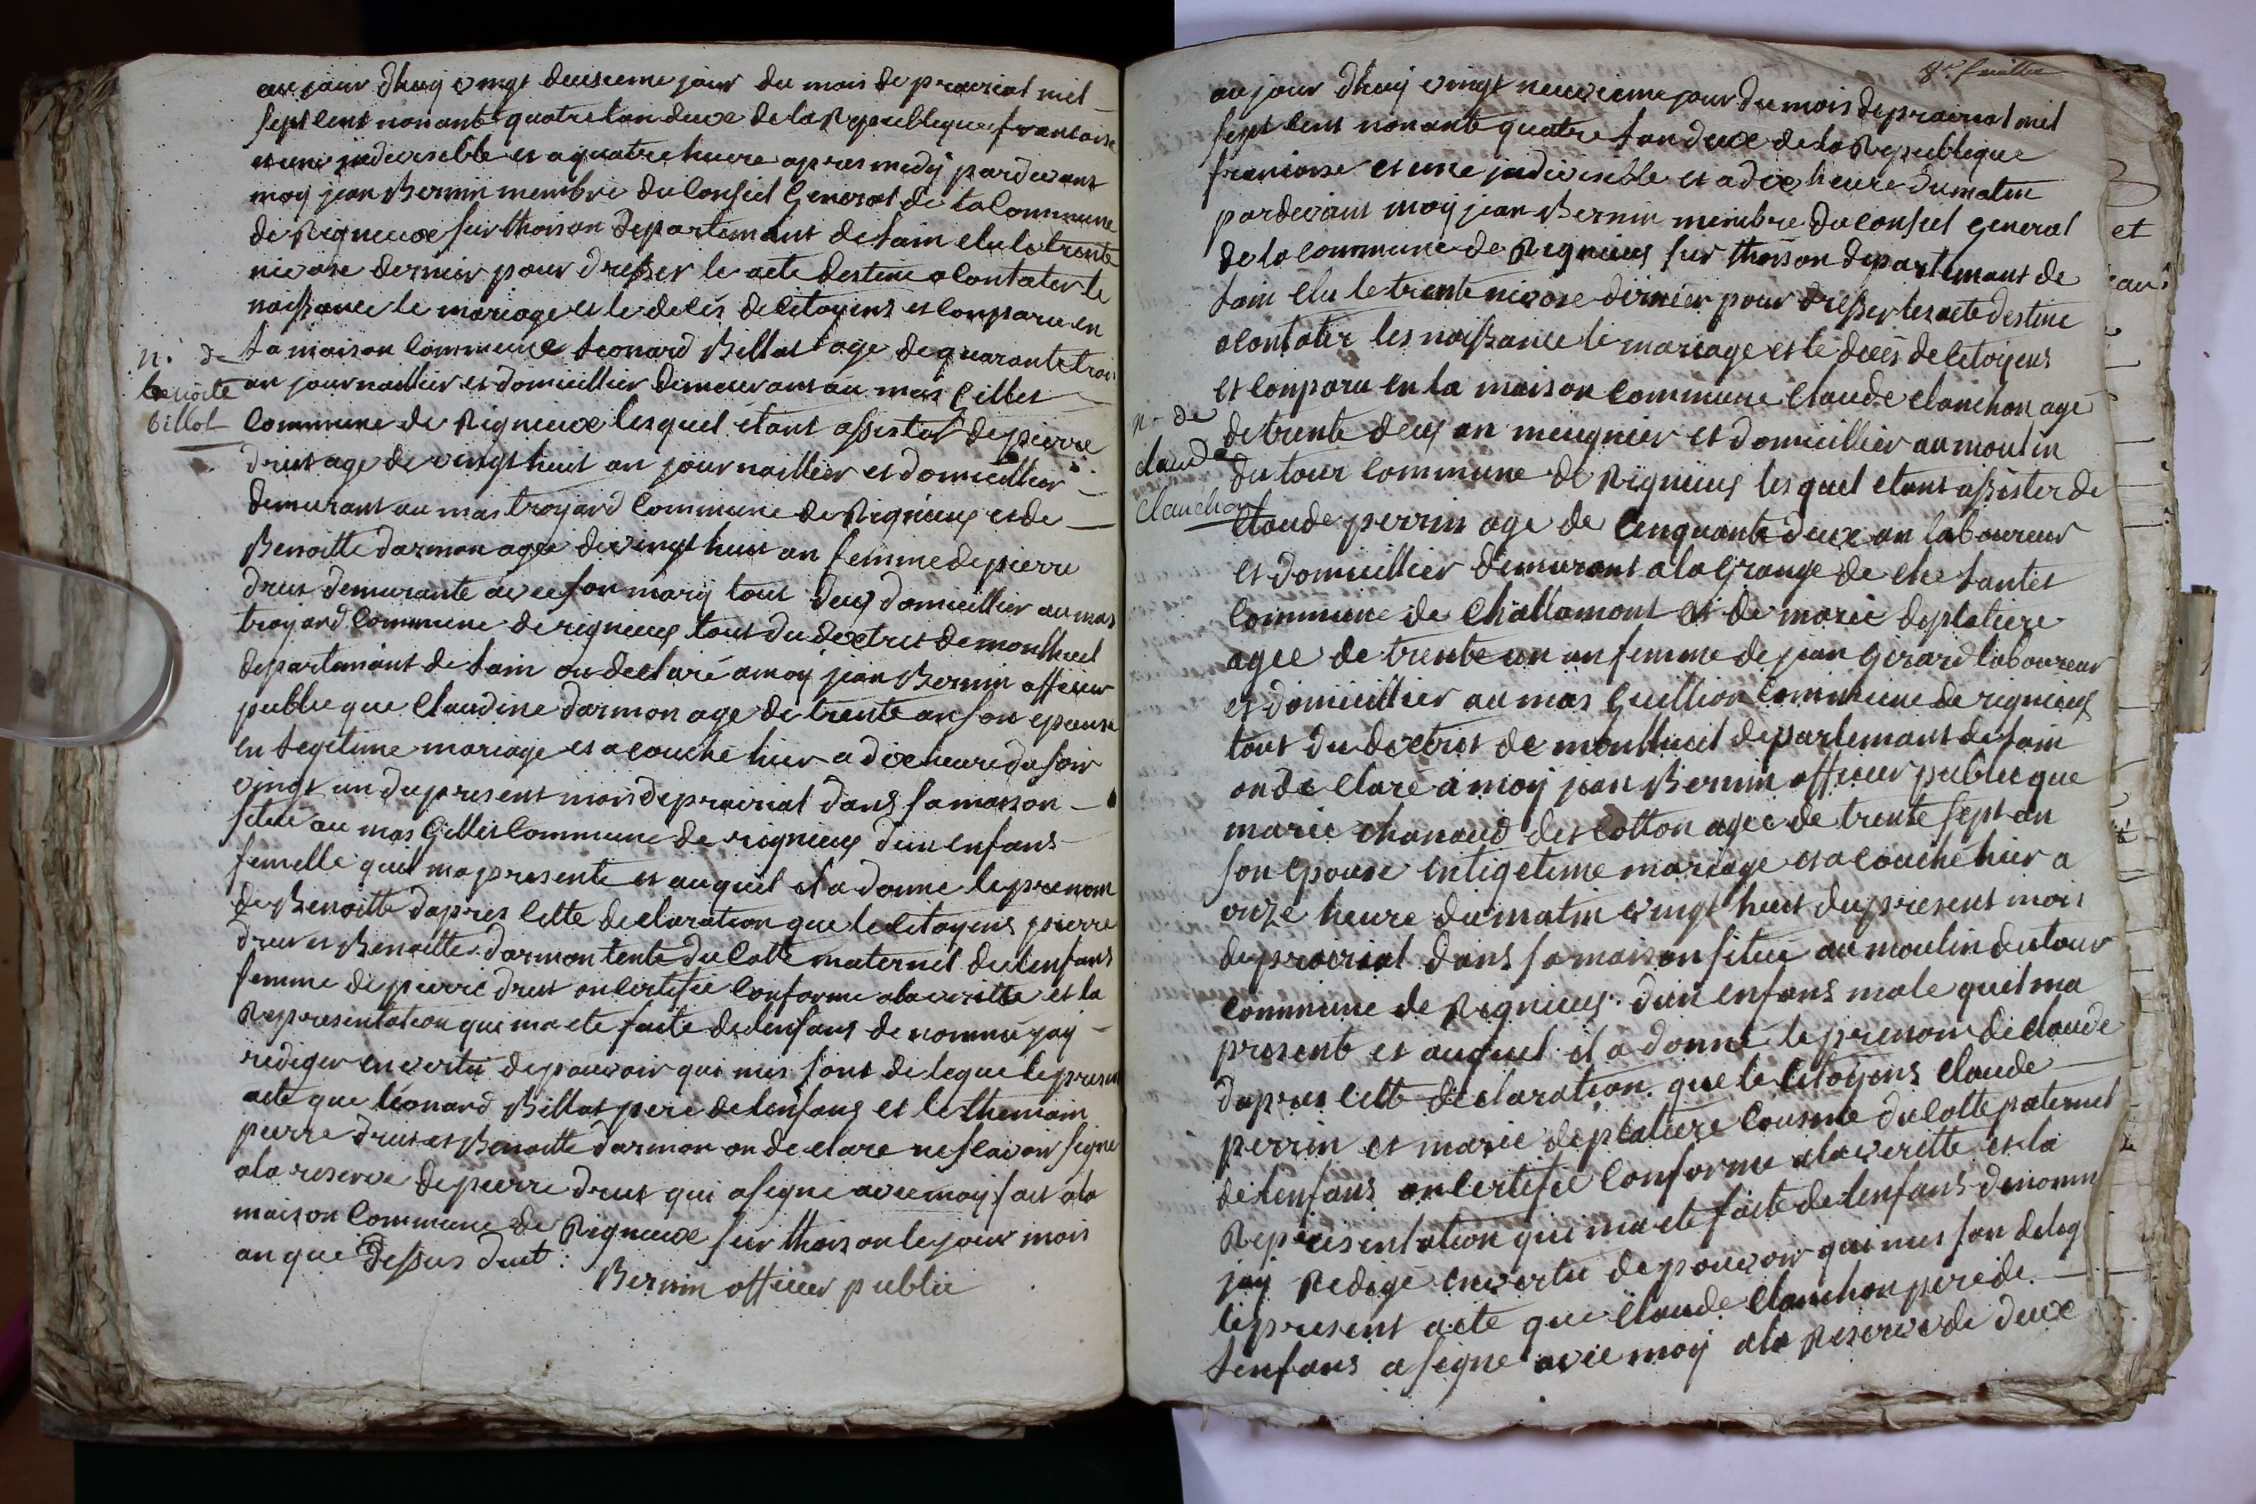 au jour dhuy vingt deusieme jour du mois de prairial mil
sept cent nonante quatre lan deuxe de la Republique francoise
et une jndivisible et a quatre heure apres medÿ pardevant
moy jean Bernin membre du Conseil General de la Commune
de Rigneuxe sur thoison Departemant de lain elu le trente
nivose dernier pour dresser le acte destine a Contater le
naissance le mariage et le deces de Citoyens est Conparu en
la maison Commune Leonard Billat age de quarante troi
n. de
benoite
billot
an journaillier et domicillier demeurant au mas Gillet
Commune de Rigneuxe lesquel etant assister de pierre
drut age de vingt huit an journaillier et domicillier
demurant au mas troyard Commune de Rigneuy et de
Benoitte darmon agee de vingt huit an femme de pierre
drut demurante avec son mary tout deuy domicillier au mas
troyard Commune de rigneuy tout du dextrit de montluel
departemant de lain on declaré a moy jean Bernin officier
public que Claudine darmon age de trente an son epouse
en legetime mariage est acouche hier a dixe heure du soir
vingt un du present mois de prairial dans sa maison
situe au mas Gillet Commune de rigneuy dun enfans
femelle quil ma presente et auquel il a donne le prenom
de Benoitte dapres Cette declaration que le Citoyens pierre
drut et Benoitte darmon tente du Cotte maternel de lenfans
femme de pierre drut on Certifie Conforme a la veritte et la
Representation qui ma ete faite de lenfans de nommé jay
rediger en vertu de pouvoir qui mes sont delegue le present
acte que léonard Billat pere de lenfans et les themoin
pierre drut et Benoitte darmon on declare ne scavoir signe
a la reserve de pierre drut qui a signe avec moy fait a la
maison Commune de Rigneuxe sur thoison le jour mois
an que Dessus duit :
Bernin officier public
8e feuillet
au jour dhuy vingt neuvieme jour du mois de prairial mil
sept cent nonante quatre lan deuxe de la Republique
francoise et une jndivisible et a dixe heure du matin
pardevant moy jean Bernin membre du Conseil General
de la Commune de Rigneuy sur thoison departemant de
lain elu le trente nivose dernier pour dresser les acte destine
a Contater les naissance le mariage et le deces de Citoyens
et Conparu en la maison Commune Claude Clanchon age
n. de
claude
Clanchon
de trente deuy an meugnier et domicillier au moulin
du tour Commune de Rigneuy lesquel etant assister de
Claude perrin age de Cinquante deuxe an laboureur
et domicillier demurant a la Grange de
Commune de Challamont et de marie deplatiere
agee de trente un an femme de jean girard laboureur
et domicillier au mas Guillion Commune de rigneuy
tout du dextrit de montluel departemant de lain
on declare a moy jean Bernin officier public que
marie chanaud agee de trente sept an
son epouse en ligetime mariage est acouche hier a
onze heure du matin vingt huit du present mois
de prairial dans sa maison situe au moulin du tour
Commune de Rigneuy dun enfans male quil ma
presente et auquel il a donné le prenom de Claude
dapres Cette declaration que le Citoyens Claude
perrin et marie deplatiere Cousine du Cotte paternel
de lenfans on Certifie Conforme a la veritte et la
Representation qui ma ete faite de lenfans denomm
jay Redige en vertu de pouvoir qui mes son deleg
le present acte que Claude Clanchon pere de
lenfans a signe avec moy a la Reserve de deuxe
et